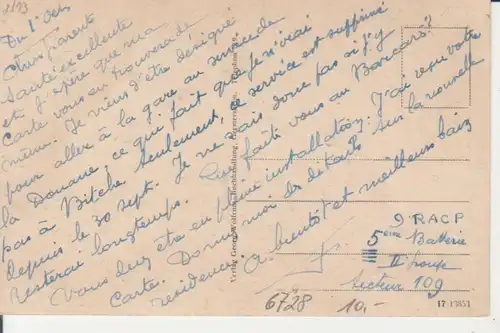 2/93
Du 1er Oct.
Chers parents
Santé excellente
et j'espère que ma
Carte vous en trouvera de
même. Je viens d'être désigné
pour aller à la gare au service de
la Douane, ce qui fait que je n'irai
pas à Bitche. Seulement, ce service est supprimé
depuis le 30 sept. Je ne sais donc pas si j'y
resterai longtemps. Que faite vous au Barcarès?
Vous devez être en pleine installation. J'ai reçu votre
Carte. Donnez moi des détails sur la nouvelle
résidence. A bientôt et meilleurs baiz
Verlag Georg
9 RACP
5ème Batterie
II Groupe
Secteur 109
6728 10,-
17-13851